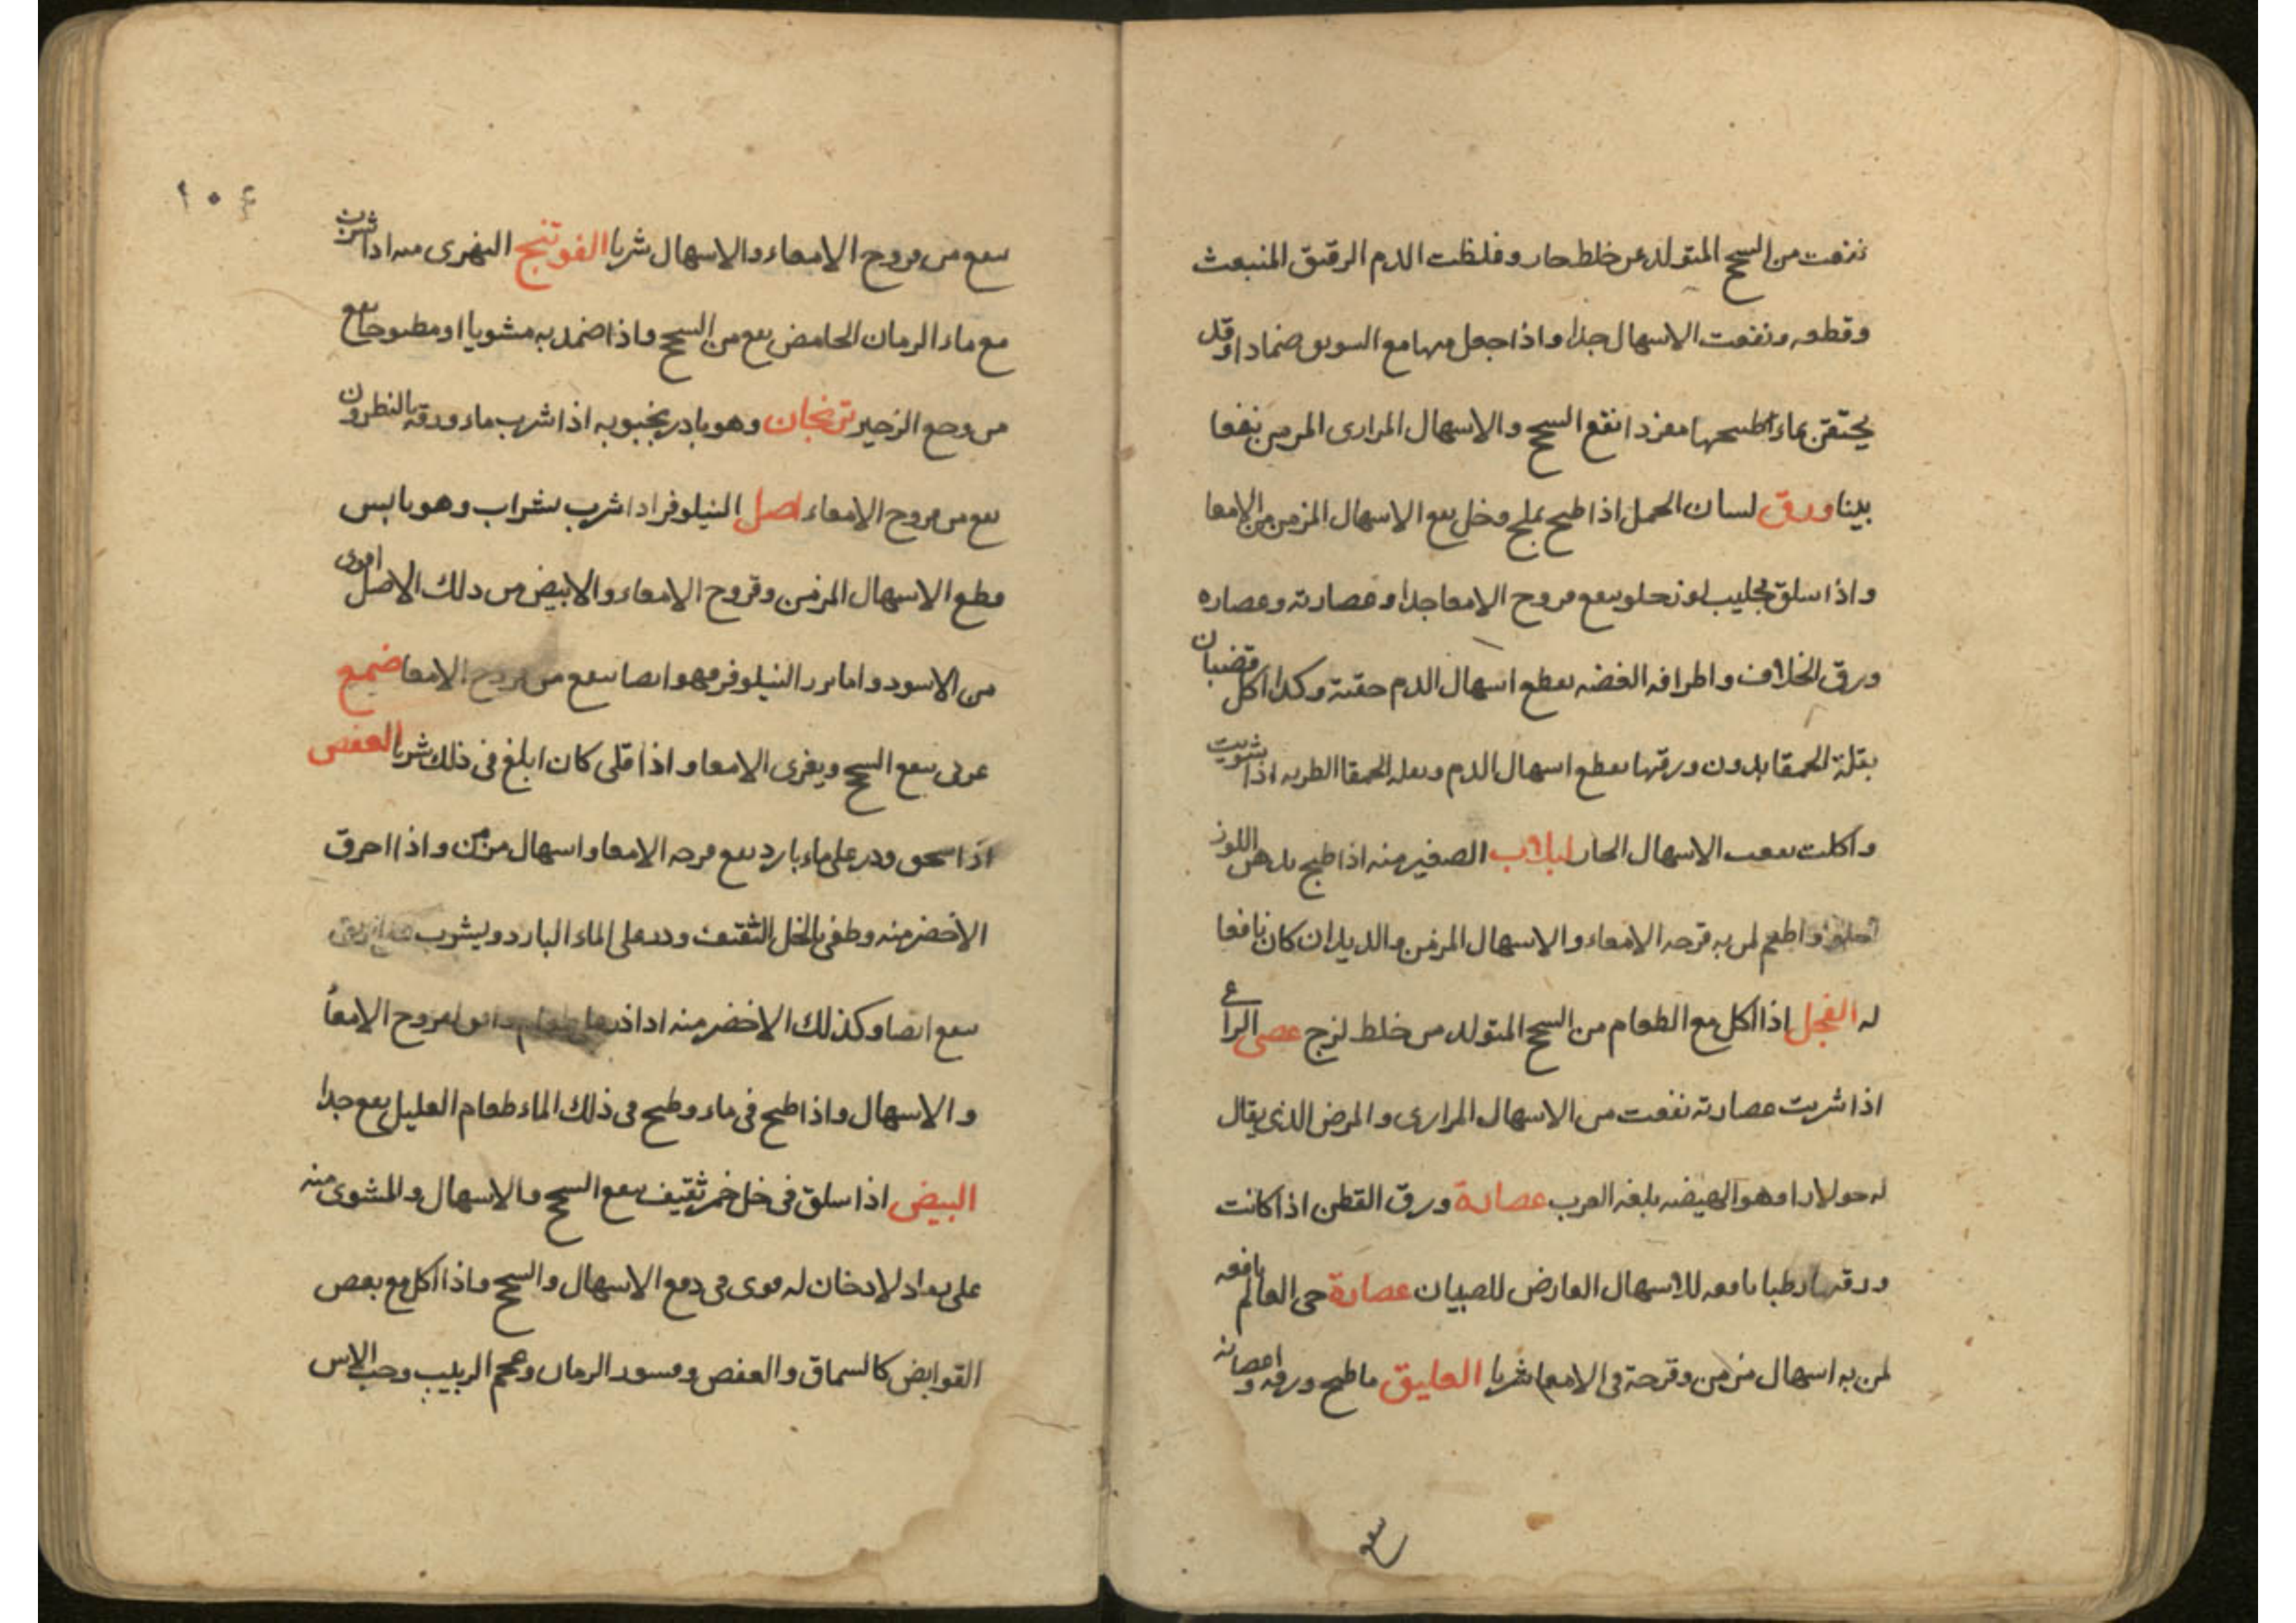 نفعت من السحج المتولد عن خلط حار وغلظت الدم الرقيق المنبعث
وقطعه ونفعت الاسهال جدا واذا جعل منها مع السويق ضمادا وقد
يحتقن بماء طبيخها مفردا نفع السحج والاسهال المرارى المزمن نفعا
بينا ورق لسان الحمل اذا طبخ بملح وخل نفع الاسهال المزمن من الامعا
واذا سلق بحليب لوز حلو نفع قروح الامعا جدا وعصارته وعصاره
ورق الخلاف واطرافه الغضه يقطع اسهال الدم حقنة وكذا اكل قضبان
بقلة الحمقا بدون ورقها يقطع اسهال الدم وبقله الحمقا الطريه اذا شويت
واكلت نفعت الاسهال الحار لبلاب الصغير منه اذا طبخ بدهن اللوز
الحلو واطعم لمن به قرحه الامعاء والاسهال المزمن والديدان كان نافعا
له الفجل اذا اكل مع الطعام من السحج المتولد من خلط لزج عصى الراع
اذا شربت عصارته نفعت من الاسهال المرارى والمرض الذى يقال
له حولارا وهو الهيضه بلغه العرب عصارة ورق القطن اذا كانت
ورقها رطبا نافعه للاسهال العارض للصبيان عصارة حى العالم نافعه
لمن به اسهال مزمن وقرحة فى الامعا شربا العليق ما طبخ ورقه واغصانه
نفع
١٠٤
ينفع من قروح الامعاء والاسهال شربا الفوتنج النهرى منه اذا شرب
مع ماء الرمان الحامض نفع من السحج واذا ضمد به مشويا او مطبوخا نفع
من وجع الزحير ترنجان وهو بادرنجبويه اذا شرب ماء ورقه بالنطرون
نفع من قروح الامعاء اصل النيلوفر اذا شرب بشراب وهو يابس
قطع الاسهال المزمن وقروح الامعاء والابيض من ذلك الاصل اقوى
من الاسود واما بزر النيلوفر فهو ايضا ينفع من قروح الامعا ضمغ
عربى ينفع السحج ويغرى الامعا واذا قلى كان ابلغ فى ذلك شربا العفص
اذا سحق وذر على ماء بارد نفع قرحه الامعا واسهال مزمن واذا احرق
الاخضر منه وطفى بالخل الثقيف وذر على الماء البارد ويشرب
ينفع ايضا وكذلك الاخضر منه اذا ذر على طعام قروح الامعا
والاسهال واذا طبخ فى ماء وطبخ فى ذلك الماء طعام العليل نفع جدا
البيض اذا سلق فى خل خمر ثقيف ينفع السحج والاسهال والمشوى منه
على رماد لا دخان له قوى فى دفع الاسهال والسحج واذا اكل مع بعض
القوابض كالسماق والعفص وقشور الرمان وعجم الزبيب وحب الاس